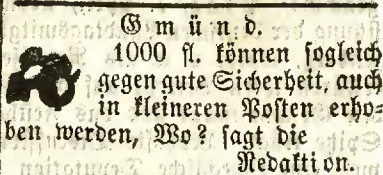 Gmünd.
1000 fl. können sogleich
gegen gute Sicherheit, auch
in kleineren Posten erho=
ben werden, Wo? sagt die
Redaktion.